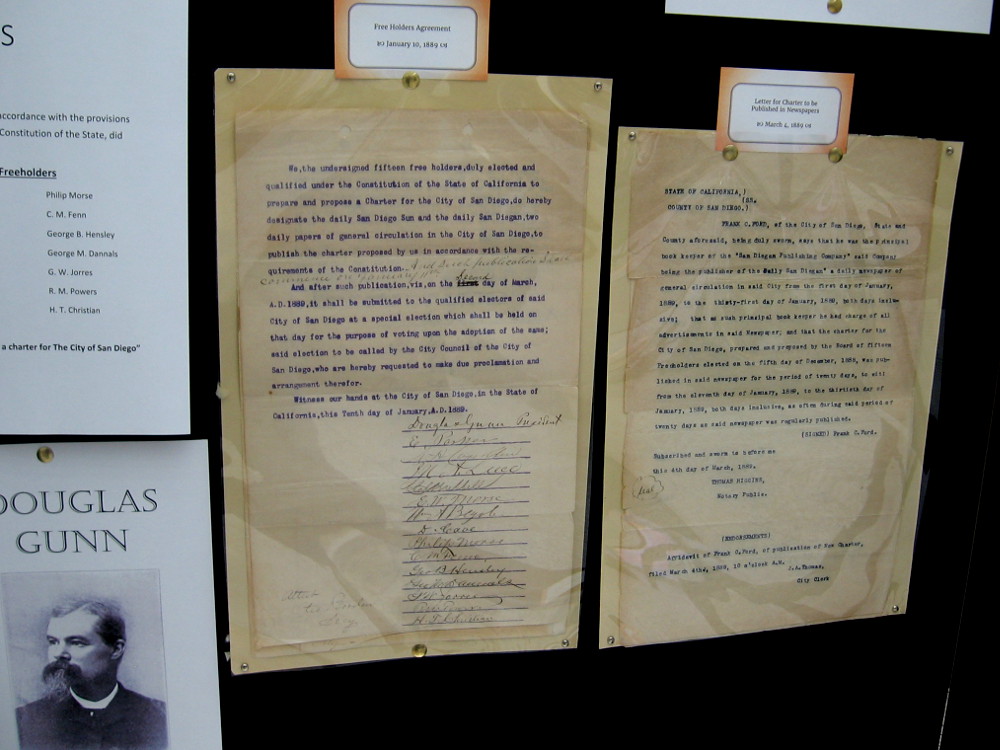 S
accordance with the provisions
Constitution of the State, did
Freeholders
Philip Morse
C. M. Fenn
George B. Hensley
George M. Dannals
G. W. Jorres
R. M. Powers
H. T. Christian
a charter for The City of San Diego"
DOUGLAS
GUNN
Free Holders Agreement
January 10, 1889
We,the undersigned fifteen free holders,duly elected and
qualified under the Constitution of the State of California to
prepare and propose a Charter for the City of San Diego,do hereby
designate the daily San Diego Sun and the daily San Diegan,two
daily papers of general circulation in the City of San Diego,to
publish the charter proposed by us in accordance with the re-
quirements of the Constitution. And such publication
commence on January
second
And after such publication,viz,on the first day of March,
A.D.1889,it shall be submitted to the qualified electors of said
City of San Diego at a special election which shall be held on
that day for the purpose of voting upon the adoption of the same;
said election to be called by the City Council of the City of
San Diego,who are hereby requested to make due proclamation and
arrangement therefor.
Witness our hands at the City of San Diego,in the State of
California,this Tenth day of January,A.D.1889.
Douglas Gunn President
M. A. Luce
E. W. Morse
D. Cave
Philip Morse
Geo B. Hensley
Geo M Dannals
H. T. Christian
Letter for Charter to be
Published in Newspapers
March 4, 1889
STATE OF CALIFORNIA,)
(SS.
COUNTY OF SAN DIEGO.)
FRANK C.FORD, of the City of San Diego, State and
County aforesaid, being duly sworn, says that he was the principal
book keeper of the "San Diegan Publishing Company" said Company
being the publisher of the daily San Diegan" a daily newspaper of
general circulation in said City from the first day of January,
1889, to the thirty-first day of January, 1889, both days inclu-
sive; that as such principal book keeper he had charge of all
advertisements in said Newspaper; and that the charter for the
City of San Diego, prepared and proposed by the Board of Fifteen
Freeholders elected on the fifth day of December, 1888, was pub-
lished in said newspaper for the period of twenty days, to wit:
from the eleventh day of January, 1889, to the thirtieth day of
January, 1889, both days inclusive, as often during said period of
twenty days as said newspaper was regularly published.
(SIGNED) Frank C.Ford.
Subscribed and sworn to before me
this 4th day of March, 1889.
THOMAS HIGGINS,
Notary Public.
Seal
(ENDORSEMENTS)
Affidavit of Frank C.Ford, of publication of New Charter,
filed March 4thd, 1889, 10 o'clock A.M.
City Clerk